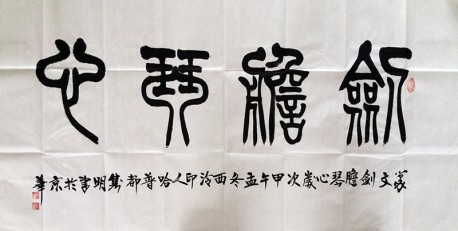 劍膽琴心
篆文劍膽琴心歲次甲午孟冬西泠印人哈普都隽明書於京華